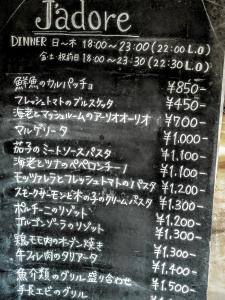 J'adore
DINNER 日〜木 18:00〜23:00(22:00 L.O)
金土・祝前日 18:00〜23:30(22:30 L.O)
鮮魚のカルパッチョ ¥850-
フレッシュトマトのブルスケッタ ¥450-
海老とマッシュルームのアーリオオーリオ ¥700-
マルゲリータ ¥1.000-
茄子のミートソースパスタ ¥1.100-
海老とツナのペペロンチーノ ¥1.100-
モッツァレラとフレッシュトマトのパスタ ¥1.200-
スモークサーモンと木の子のクリームパスタ ¥1.300-
ポルチーニのリゾット ¥1.200-
ゴルゴンゾーラのリゾット ¥1.300-
鶏モモ肉のオーブン焼き ¥1.300-
牛フィレ肉のタリアータ ¥1.400-
魚介類のグリル盛り合わせ ¥1.500-
手長エビのグリル